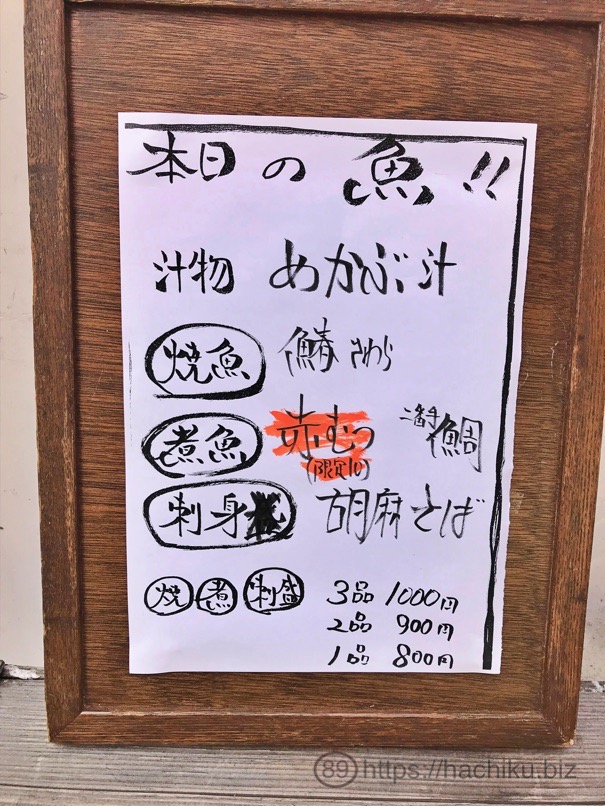 本日の魚!!
汁物 めかぶ汁
焼魚 鰆 さわら
煮魚 赤むつ 二番手 鯛
(限定10)
刺身 胡麻さば
焼 煮 刺盛 3品 1000円
2品 900円
1品 800円
89 https://hachiku.biz